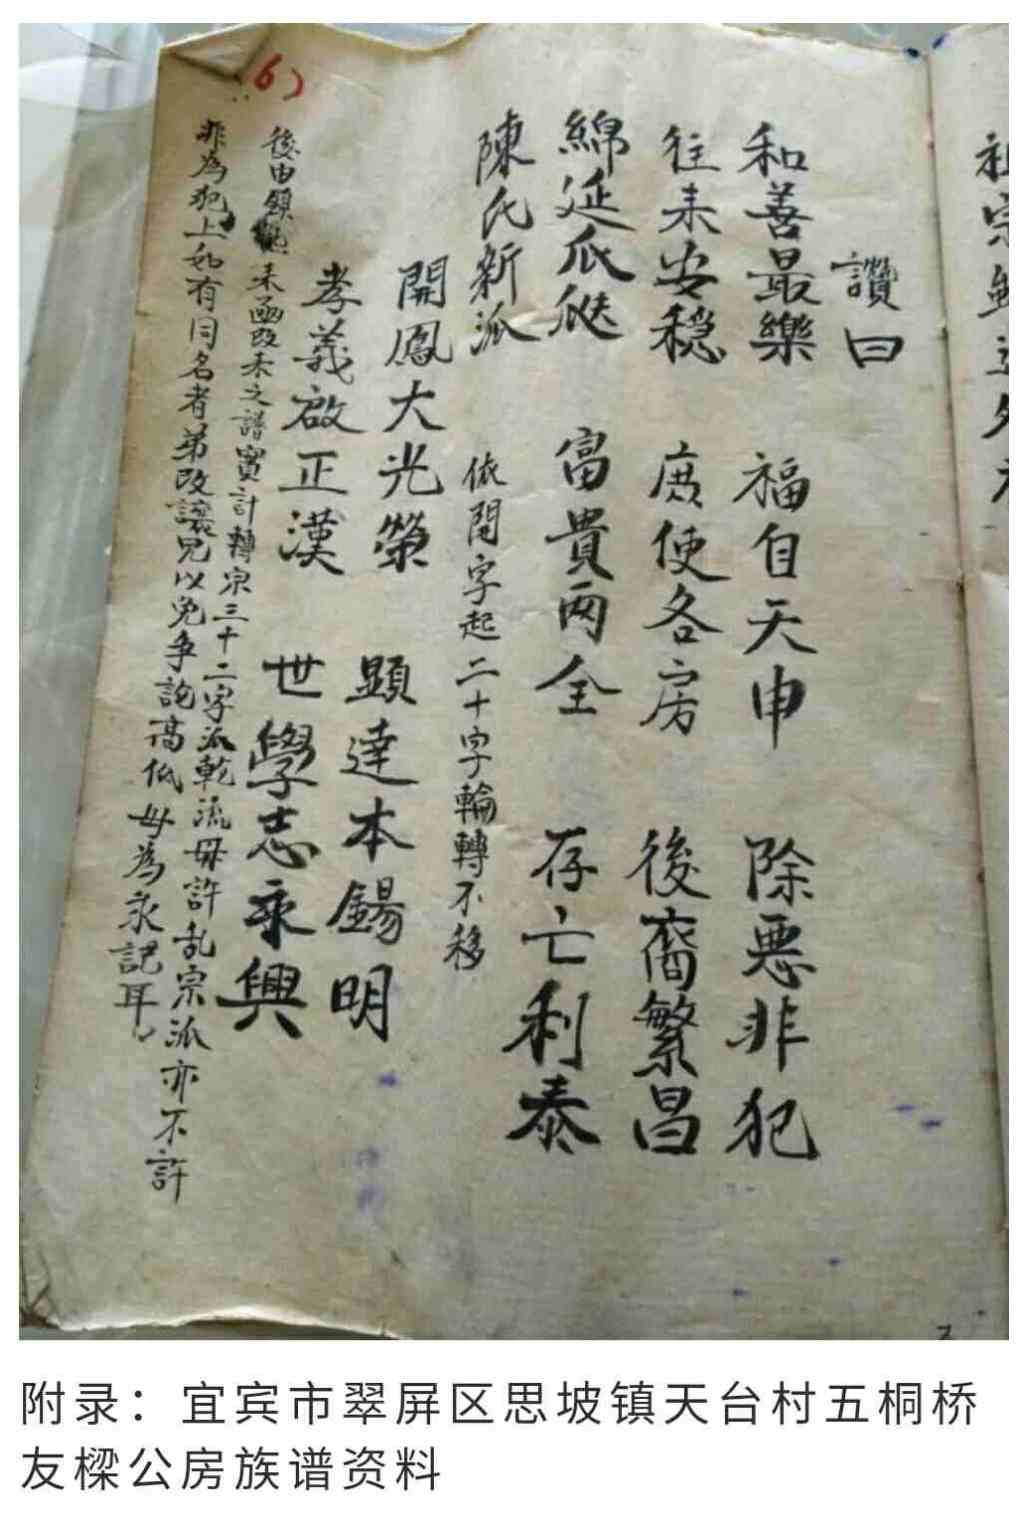 (6)
讚曰
和善最樂 福自天申 除惡非犯
往来安稳 庶使各房 後裔繁昌
綿延瓜瓞 富貴両全 存亡利泰
陳氏新派 依開字起二十字輪轉不移
開鳳大光榮 顯達本錫明
孝義啟正漢 世學志永興
後由鎮 未函改未之譜實計轉宗三十二字派乾流毋許乱宗派亦不許
非為犯上如有同名者弟改讓兄以免爭論高低毋為永記耳
附录：宜宾市翠屏区思坡镇天台村五桐桥
友樑公房族谱资料